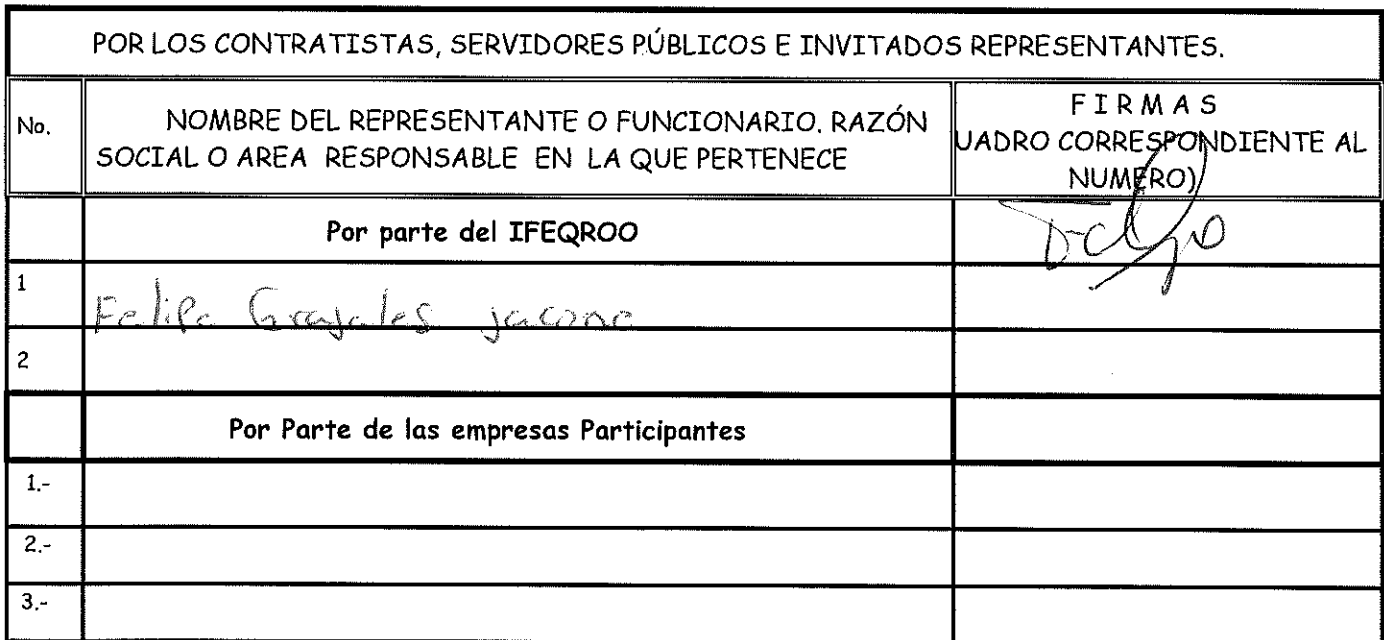 POR LOS CONTRATISTAS, SERVIDORES PÚBLICOS E INVITADOS REPRESENTANTES.
No.
NOMBRE DEL REPRESENTANTE O FUNCIONARIO. RAZÓN
SOCIAL O AREA RESPONSABLE EN LA QUE PERTENECE
FIRMAS
UADRO CORRESPONDIENTE AL
NUMERO)
Por parte del IFEQROO
1
Felipe Grajales jacome
2
Por Parte de las empresas Participantes
1.-
2.-
3.-